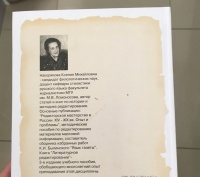 Накорякова Ксения Михайловна
- кандидат филологических наук,
доцент кафедры стилистики
русского языка факультета
журналистики МГУ
им. М.В. Ломоносова, автор
статей и книг по истории и
методике редактирования.
Основные публикации:
"Редакторское мастерство в
России. XVI - XIX вв. Опыт и
проблемы", методические
пособия по редактированию
материалов массовой
информации, составитель
сборника избранных работ
К.И. Былинского "Язык газеты".
Книга "Литературное
редактирование" -
учебное пособие,
преподавания этой дисциплины